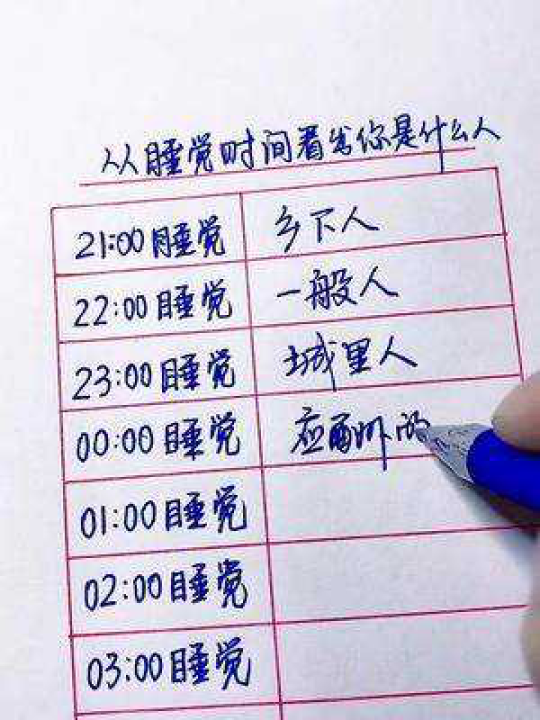 从睡觉时间看出你是什么人
21:00睡觉 乡下人
22:00睡觉 一般人
23:00睡觉 城里人
00:00睡觉 应酬的
01:00睡觉
02:00睡觉
03:00睡觉